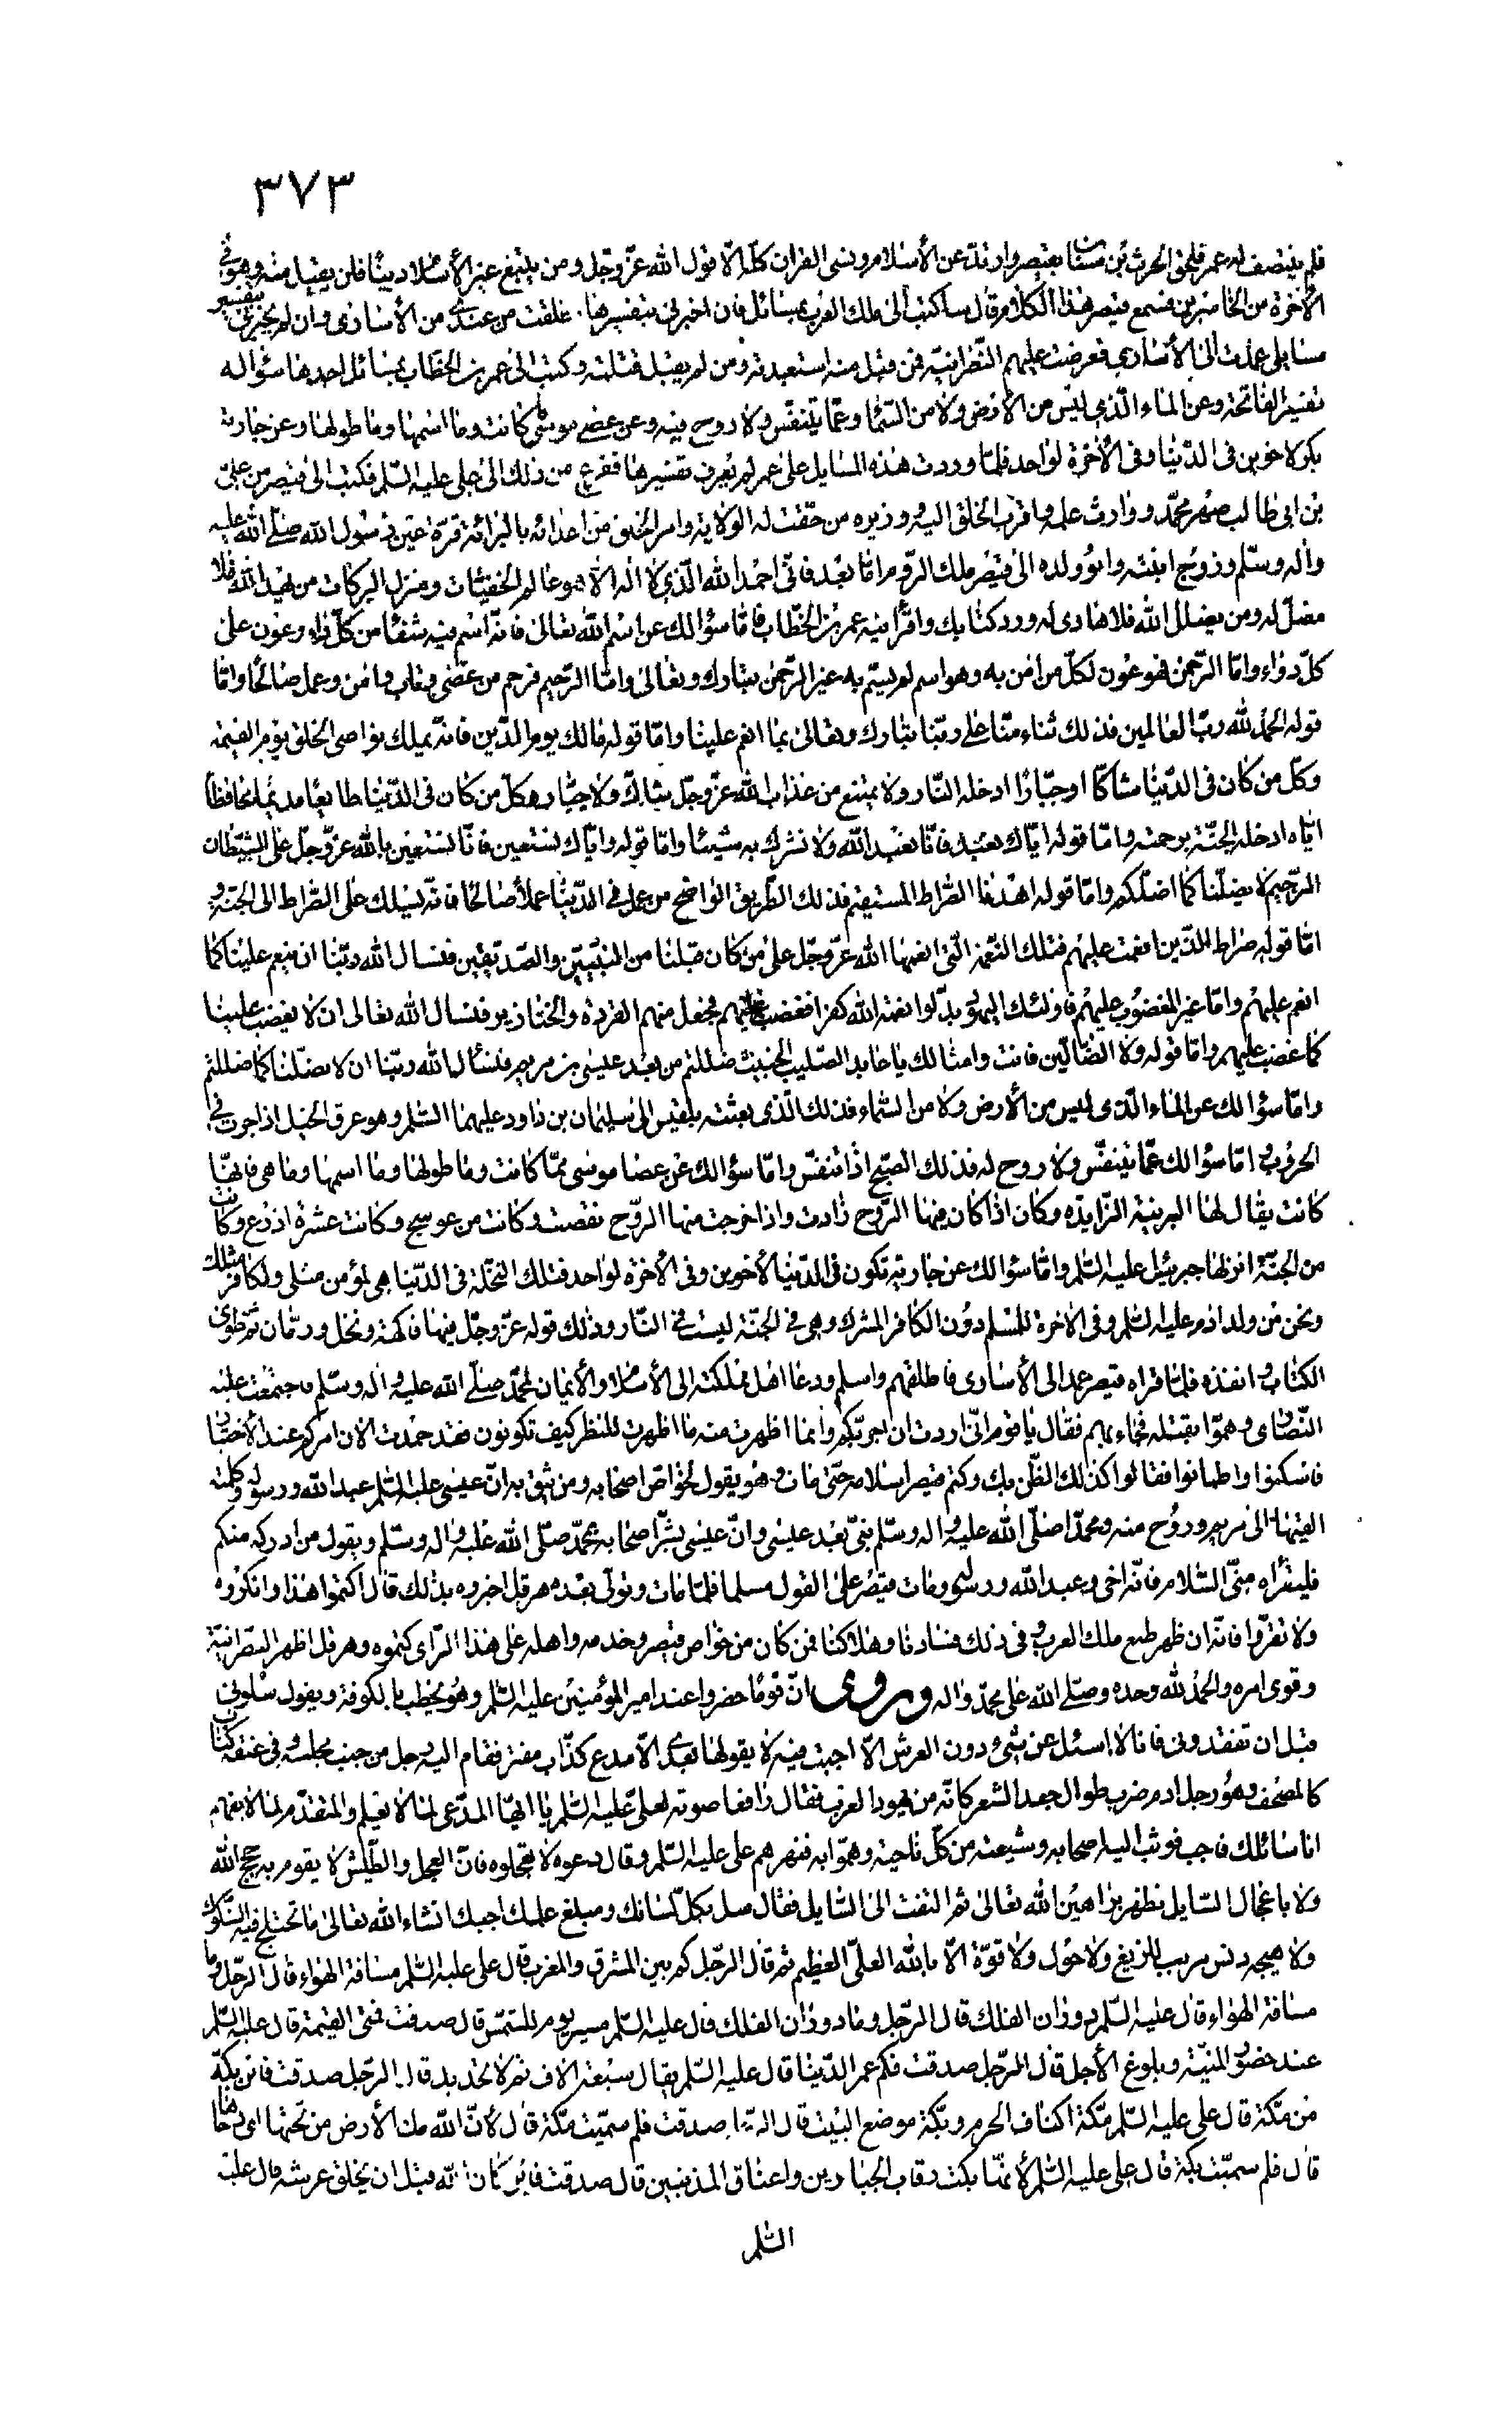 ٣٧٣
فلم ينتصف له عمر فلحق الحرث بن سنان بقيصر وارتدّ عن الأسلام ونسى القران كلّه الّا قول الله عزّ وجل ومن يبتغ غير الأسلام دينًا فلن يقبل منه وهو فى
الأخرة من الخاسرين فسمع قيصر هذا الكلام وقال ساكتب الى ملك العرب بمسائل فان اخبرنى بتفسيرها. اطلقت من عندى من الأسارى وان لم يخبرنى بتفسير
مسايلى عمدت الى الأسارى فعرضت عليهم النّصرانيّة فمن قبل منه استعبدته ومن لم يقبل قتلته وكتب الى عمر بن الخطّاب بمسائل احدها سؤاله
تفسير الفاتحة وعن الماء الّذى ليس من الأرض ولا من السّماء وعمّا يتنفّس ولا روح فيه وعن عصى موسى ممّ كانت وما اسمها وما طولها وعن جارية
بكر لأخوين فى الدّنيا وفى الأخرة لواحد فلمّا وردت هذه المسايل على عمر لم يعرف تفسيرها ففزع من ذلك الى على عليه السّلم فكتب الى قيصر من علىّ
بن ابى طالب صهر محمّد ووارث علمه واقرب الخلق اليه ووزيره من حقّت له الولاية وامر الخلق من اعدائه بالبرائة قرّة عين رسول الله صلّى الله عليه
واله وسلّم وزوج ابنته وابو ولده الى قيصر ملك الرّوم امّا بعد فانّى احمد الله الّذى لا اله الّا هو عالم الخفيّات ومنزل البركات من يهد الله فلا
مضلّ له ومن يضلل الله فلا هادى له ورد كتابك واقرأنيه عمر بن الخطّاب فامّا سؤالك عن اسم الله تعالى فانّه اسم فيه شفاء من كلّ داء وعون على
كلّ دواء وامّا الرّحمن فهو عون لكلّ من امن به وهو اسم لم يسمّ به غير الرّحمن تبارك وتعالى وامّا الرّحيم فرحم من عصى وتاب وامن وعمل صالحًا وامّا
قوله الحمد لله ربّ العالمين فذلك ثناء منّا على ربّنا تبارك وتعالى بما انعم علينا وامّا قوله مالك يوم الدّين فانّه يملك نواصى الخلق يوم القيمة
وكلّ من كان فى الدّنيا شاكّا او جبّارًا ادخله النّار ولا يمتنع من عذاب الله عزّ وجلّ شاكّ ولا جبّار وكلّ من كان فى الدّنيا طايعًا مديمًا محافظًا
ايّاه ادخله الجنّة برحمته وامّا قوله ايّاك نعبد فانّا نعبد الله ولا نشرك به شيئا وامّا قوله وايّاك نستعين فانّا نستعين بالله عزّ وجلّ على الشّيطان
الرّجيم لا يضلّنا كما اضلّكم وامّا قوله اهدنا الصّراط المستقيم فذلك الطّريق الواضح من عمل فى الدّنيا عملاً صالحًا فانّه يسلك على الصّراط الى الجنّة و
امّا قوله صراط الّذين انعمت عليهم فتلك النّعمة الّتى انعمها الله عزّ وجلّ على من كان قبلنا من النّبيّين والصّدّيقين فنسال الله ربّنا ان ينعم علينا كما
انعم عليهم وامّا غير المغضوب عليهم فاولئك اليهود بدّلوا نعمة الله كفرا فغضب عليهم فجعل منهم القردة والخنازير فنسال الله تعالى ان لا يغضب علينا
كما غضب عليهم وامّا قوله ولا الضّالّين فانت وامثالك يا عابد الصّليب الخبيث ضللتم من بعد عيسى بن مريم فنسال الله ربّنا ان لا يضلّنا كما ضللتم
وامّا سؤالك عن الماء الّذى ليس من الأرض ولا من السّماء فذلك الّذى بعثته بلقيس الى سليمان بن داود عليهما السّلم وهو عرق الخيل اذا جرت فى
الحروب وامّا سؤالك عمّا يتنفّس ولا روح له فذلك الصّبح اذا تنفّس وامّا سؤالك عن عصا موسى ممّا كانت وما طولها وما اسمها وما هى فانّها
كانت يقال لها البرنية الزّايدة وكان اذا كان فيها الرّوح زادت واذا خرجت منها الرّوح نقصت وكانت من عوسج وكانت عشرة اذرع وكانت
من الجنّة انزلها جبرئيل عليه السّلم وامّا سؤالك عن جارية تكون فى الدّنيا لأخوين وفى الأخرة لواحد فتلك النّخلة فى الدّنيا هى لمؤمن مثلى ولكافر مثلك
ونحن من ولد ادم عليه السّلم وفى الأخرة للمسلم دون الكافر المشرك وهى فى الجنّة ليست فى النّار وذلك قوله عزّ وجلّ فيها فاكهة ونخل ورمّان ثمّ طوى
الكتاب وانفذه فلمّا قراه قيصر عمد الى الأسارى فاطلقهم واسلم ودعا اهل مملكته الى الأسلام والأيمان بمحمّد صلّى الله عليه واله وسلّم فاجتمعت عليه
النّصارى وهمّوا بقتله فجاء بهم فقال يا قوم انّى اردت ان اجرّبكم وانّما اظهرت منه ما اظهرت للنظر كيف تكونون فقد حمدت الان امركم عند الأختبار
فاسكنوا واطمانوا فقالوا كذلك الظّن بك وكتم قيصر اسلامه حتّى مات وهو يقول لخواصّ اصحابه ومن يثق به انّ عيسى عليه السّلم عبد الله ورسوله وكلمته
القيها الى مريم وروح منه ومحمّدا صلّى الله عليه واله وسلّم نبىّ بعد عيسى وانّ عيسى بشّر اصحابه بمحمّد صلّى الله عليه واله وسلّم ويقول من ادركه منكم
فليقرأه منّى السّلام فانّه اخى وعبد الله ورسوله ومات قيصر على القول مسلما فلمّا مات وتولّى بعده هرقل اخبروه بذلك قال اكتموا هذا وانكروه
ولا تقرّوا فانّه ان ظهر طمع ملك العرب وفى ذلك فسادنا وهلاكنا فمن كان من خواص قيصر وخدمه واهله على هذا الرّاى كتموه وهرقل اظهر النّصرانيّة
وقوى امره والحمد لله وحده وصلّى الله على محمّد واله وروى انّ قومًا حضروا عند امير المؤمنين عليه السّلم وهو يخطب بالكوفة ويقول سلونى
قبل ان تفقدونى فانا لا اسئل عن شىء دون العرش الّا اجبت فيه لا يقولها بعدى الّا مدع كذّاب مفتر فقام اليه رجل من جنب مجلسه وفى عنقه كتاب
كالمصحف وهو رجل ادم ضرب طوال جعد الشعر كانّه من يهود العرب فقال رافعا صوته لعلىّ عليه السّلم يا ايّها المدّعى لما لا يعلم والمتقدّم لما لا يفهم
انا سائلك فاجب فوثب اليه اصحابه وشيعته من كلّ ناحية وهمّوا به فنهرهم على عليه السّلم وقال دعوه لا تعجلوه فانّ العجل والطّيش لا يقوم به حجج الله
ولا باعجال السّايل تظهر براهين الله تعالى ثمّ التفت الى السّايل فقال سل بكلّ لسانك ومبلغ علمك اجبك انشاء الله تعالى ما تختلج فيه الشّكوك
ولا يهيجه دنس مريب الزيغ ولا حول ولا قوّة الّا بالله العلىّ العظيم ثم قال الرّجل كم بين المشرق والمغرب قال على عليه السّلم مسافة الهواء قال الرّجل وما
مسافة الهواء قال عليه السّلم دوران الفلك قال الرّجل وما دوران الفلك قال عليه السّلم مسير يوم للشّمس قال صدقت فمتى القيمة قال عليه السّلم
عند حضور المنيّة وبلوغ الأجل قال الرّجل صدقت فكم عمر الدّنيا قال عليه السّلم يقال سبعة الاف ثمّ لا تحديد قال الرّجل صدقت فاين بكّة
من مكّة قال على عليه السّلم مكّة اكناف الحرم وبكّة موضع البيت قال صدقت فلم سمّيت مكّة قال لأنّ الله مك الأرض من تحتها اى دحاها
قال فلم سمّيت بكّة قال على عليه السّلم لأنّها بكت رقاب الجبّارين واعناق المذنبين قال صدقت فاين كان الله قبل ان يخلق عرشه قال عليه
السّلم